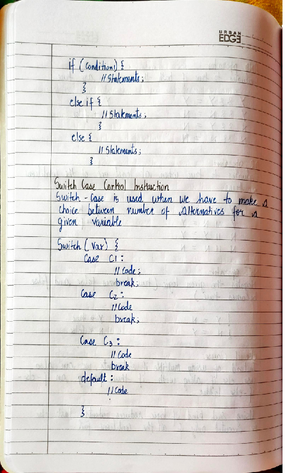 URBAN
EDGE
if (condition) {
// Statements;
}
else if {
// Statements;
}
else {
// Statements;
}
Switch Case Control Instruction
Switch-Case is used when we have to make a
choice between number of alternatives for a
given variable
Switch (Var) {
Case C1:
// Code;
break;
Case C2:
// Code
break;
Case C3:
// Code
break
default:
// Code
}